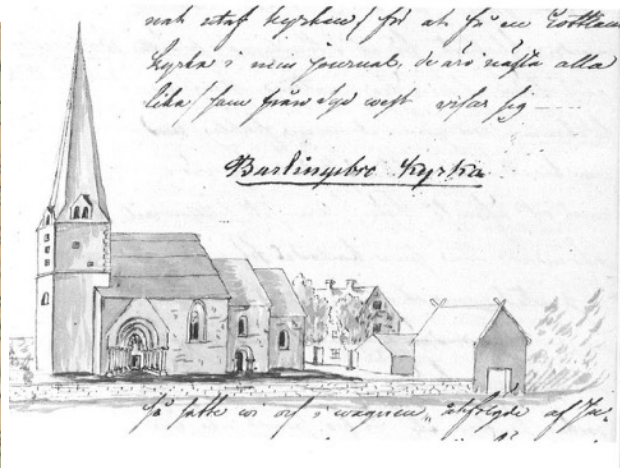 af kyrkan / för at få en Gottlans
kyrka i min journal, de äro nästa alla
lika / som från Syd west visar sig
Barlingebro Kyrka
Så satte wi oss i wagnen, åtfölgde af